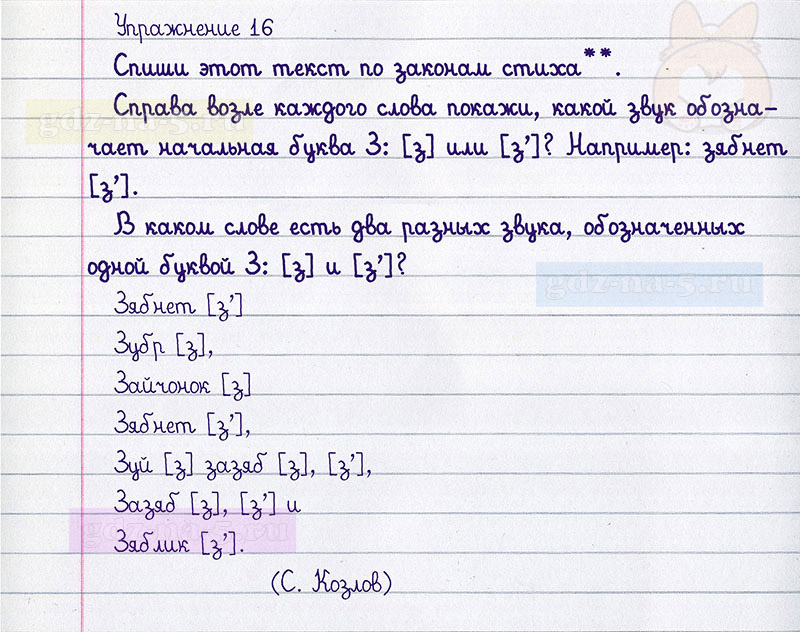 Упражнение 16
Спиши этот текст по законам стиха**.
Справа возле каждого слова покажи, какой звук обозна-
чает начальная буква З: [з] или [з’]? Например: зябнет
[з’].
В каком слове есть два разных звука, обозначенных
одной буквой З: [з] и [з’]?
Зябнет [з’]
Зубр [з],
Зайчонок [з]
Зябнет [з’],
Зуй [з] зазяб [з], [з’],
Зазяб [з], [з’] и
Зяблик [з’].
(С. Козлов)
gdz-na-5.ru
gdz-na-5.ru
gdz-na-5.ru